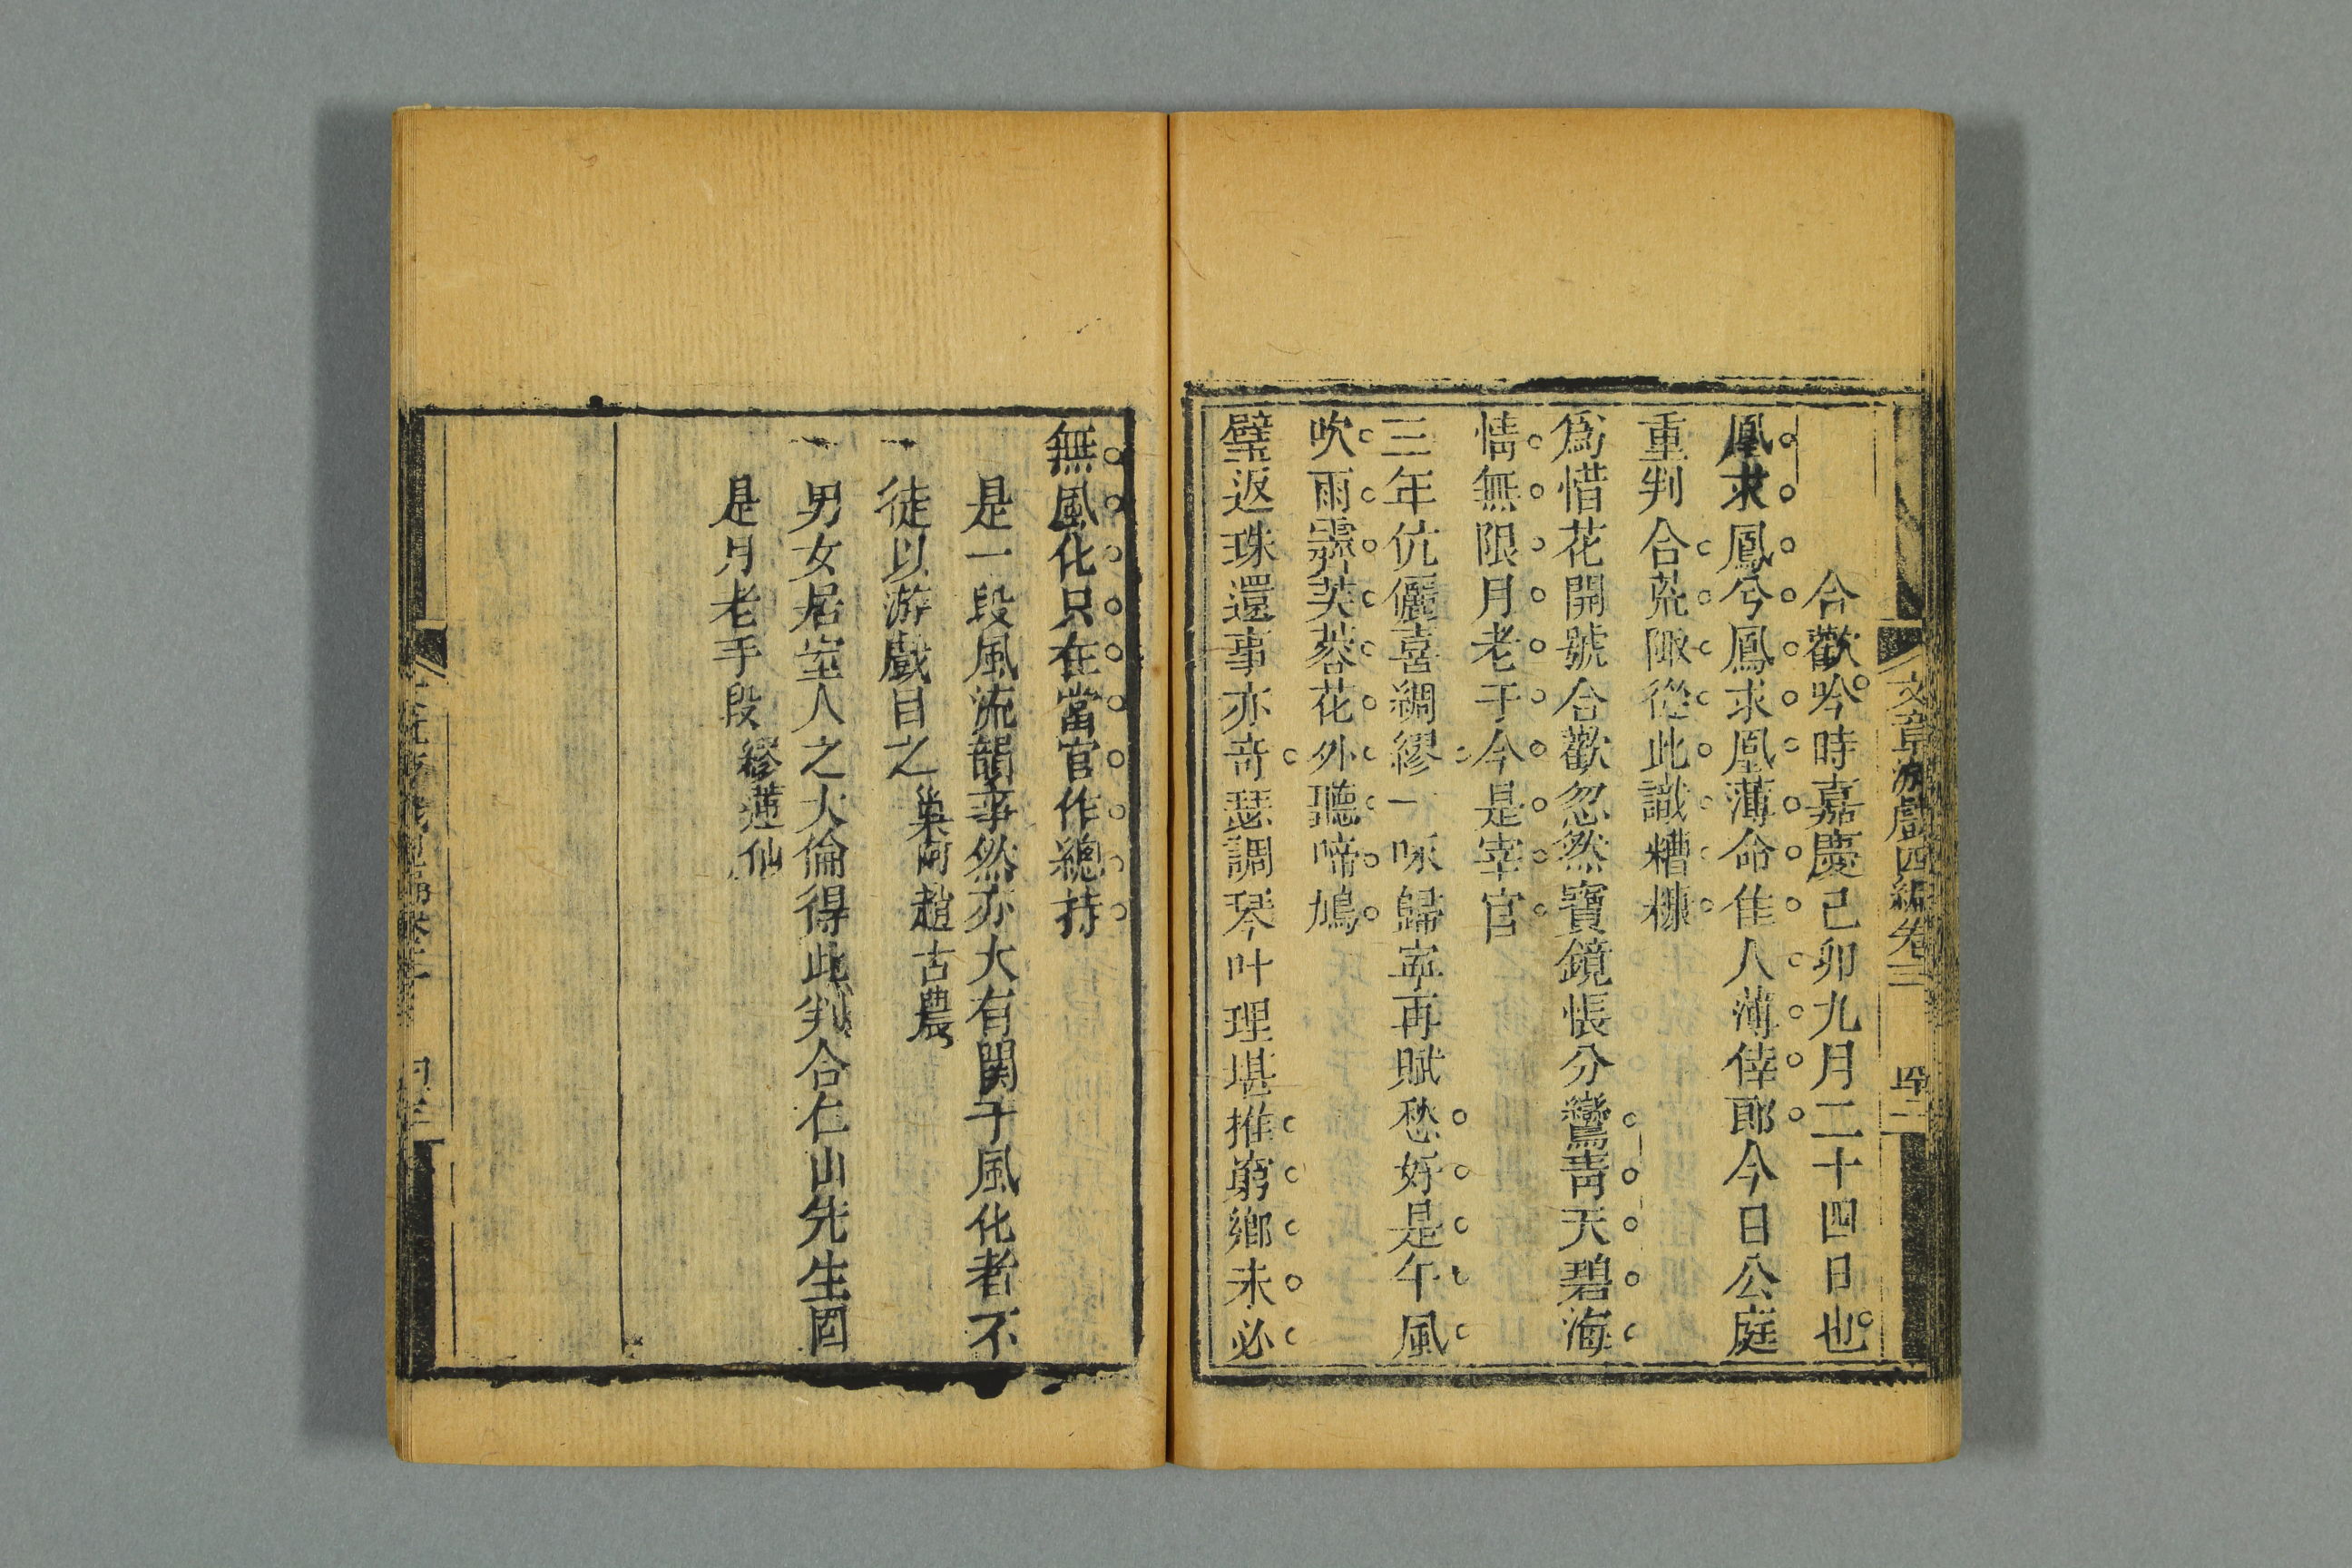 文章游戲四編卷三
四二
合歡吟時嘉慶己卯九月二十四日也
凰求鳳兮鳳求凰薄命佳人薄倖郎今日公庭
重判合荒陬從此識糟糠
爲惜花開號合歡忽然寶鏡悵分鸞靑天碧海
情無限月老于今是宰官
三年伉儷喜綢繆一咏歸寧再賦愁好是午風
吹雨霽芙蓉花外聽啼鳩
璧返珠還事亦奇瑟調琴叶理堪推窮鄉未必
無風化只在當官作總持
是一段風流韻事然亦大有関于風化者不
徒以游戲目之 吳門趙古農
男女居室人之大倫得此判合仁山先生固
是月老手段 繆蓮仙